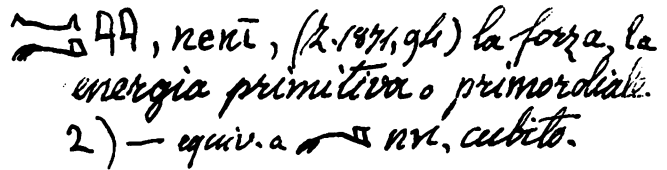 , nenī, (Z. 1871, 94) la forza, la
energia primitiva o primordiale.
2) — equiv. a nn, cubito.